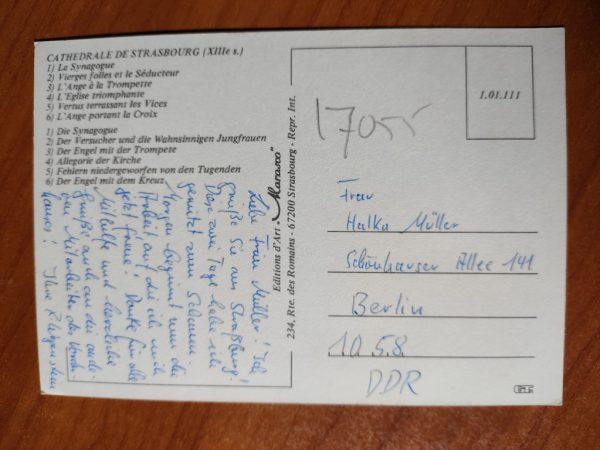 CATHEDRALE DE STRASBOURG (XIIIe s.)
1) La Synagogue
2) Vierges folles et le Séducteur
3) L'Ange à la Trompette
4) L'Eglise triomphante
5) Vertus terrassant les Vices
6) L'Ange portant la Croix
1) Die Synagogue
2) Der Versucher und die Wahnsinnigen Jungfrauen
3) Der Engel mit der Trompete
4) Allegorie der Kirche
5) Fehlern niedergeworfen von den Tugenden
6) Der Engel mit dem Kreuz
Liebe Frau Müller! Ich
grüße Sie aus Straßburg!
Diese zwei Tage habe ich
genutzt zum Schauen.
Morgen beginnt nun die
Arbeit auf die ich mich
jetzt freue! Danke für alle
Mithilfe und herzliche
Grüße auch an die ande-
ren Mitarbeiter des
hauses! Ihre
Editions d'Art "Marasco"
234, Rte. des Romains - 67200 Strasbourg - Repr. Int.
1.01.111
17055
Frau
Halka Müller
Schönhauser Allee 141
Berlin
1058
DDR